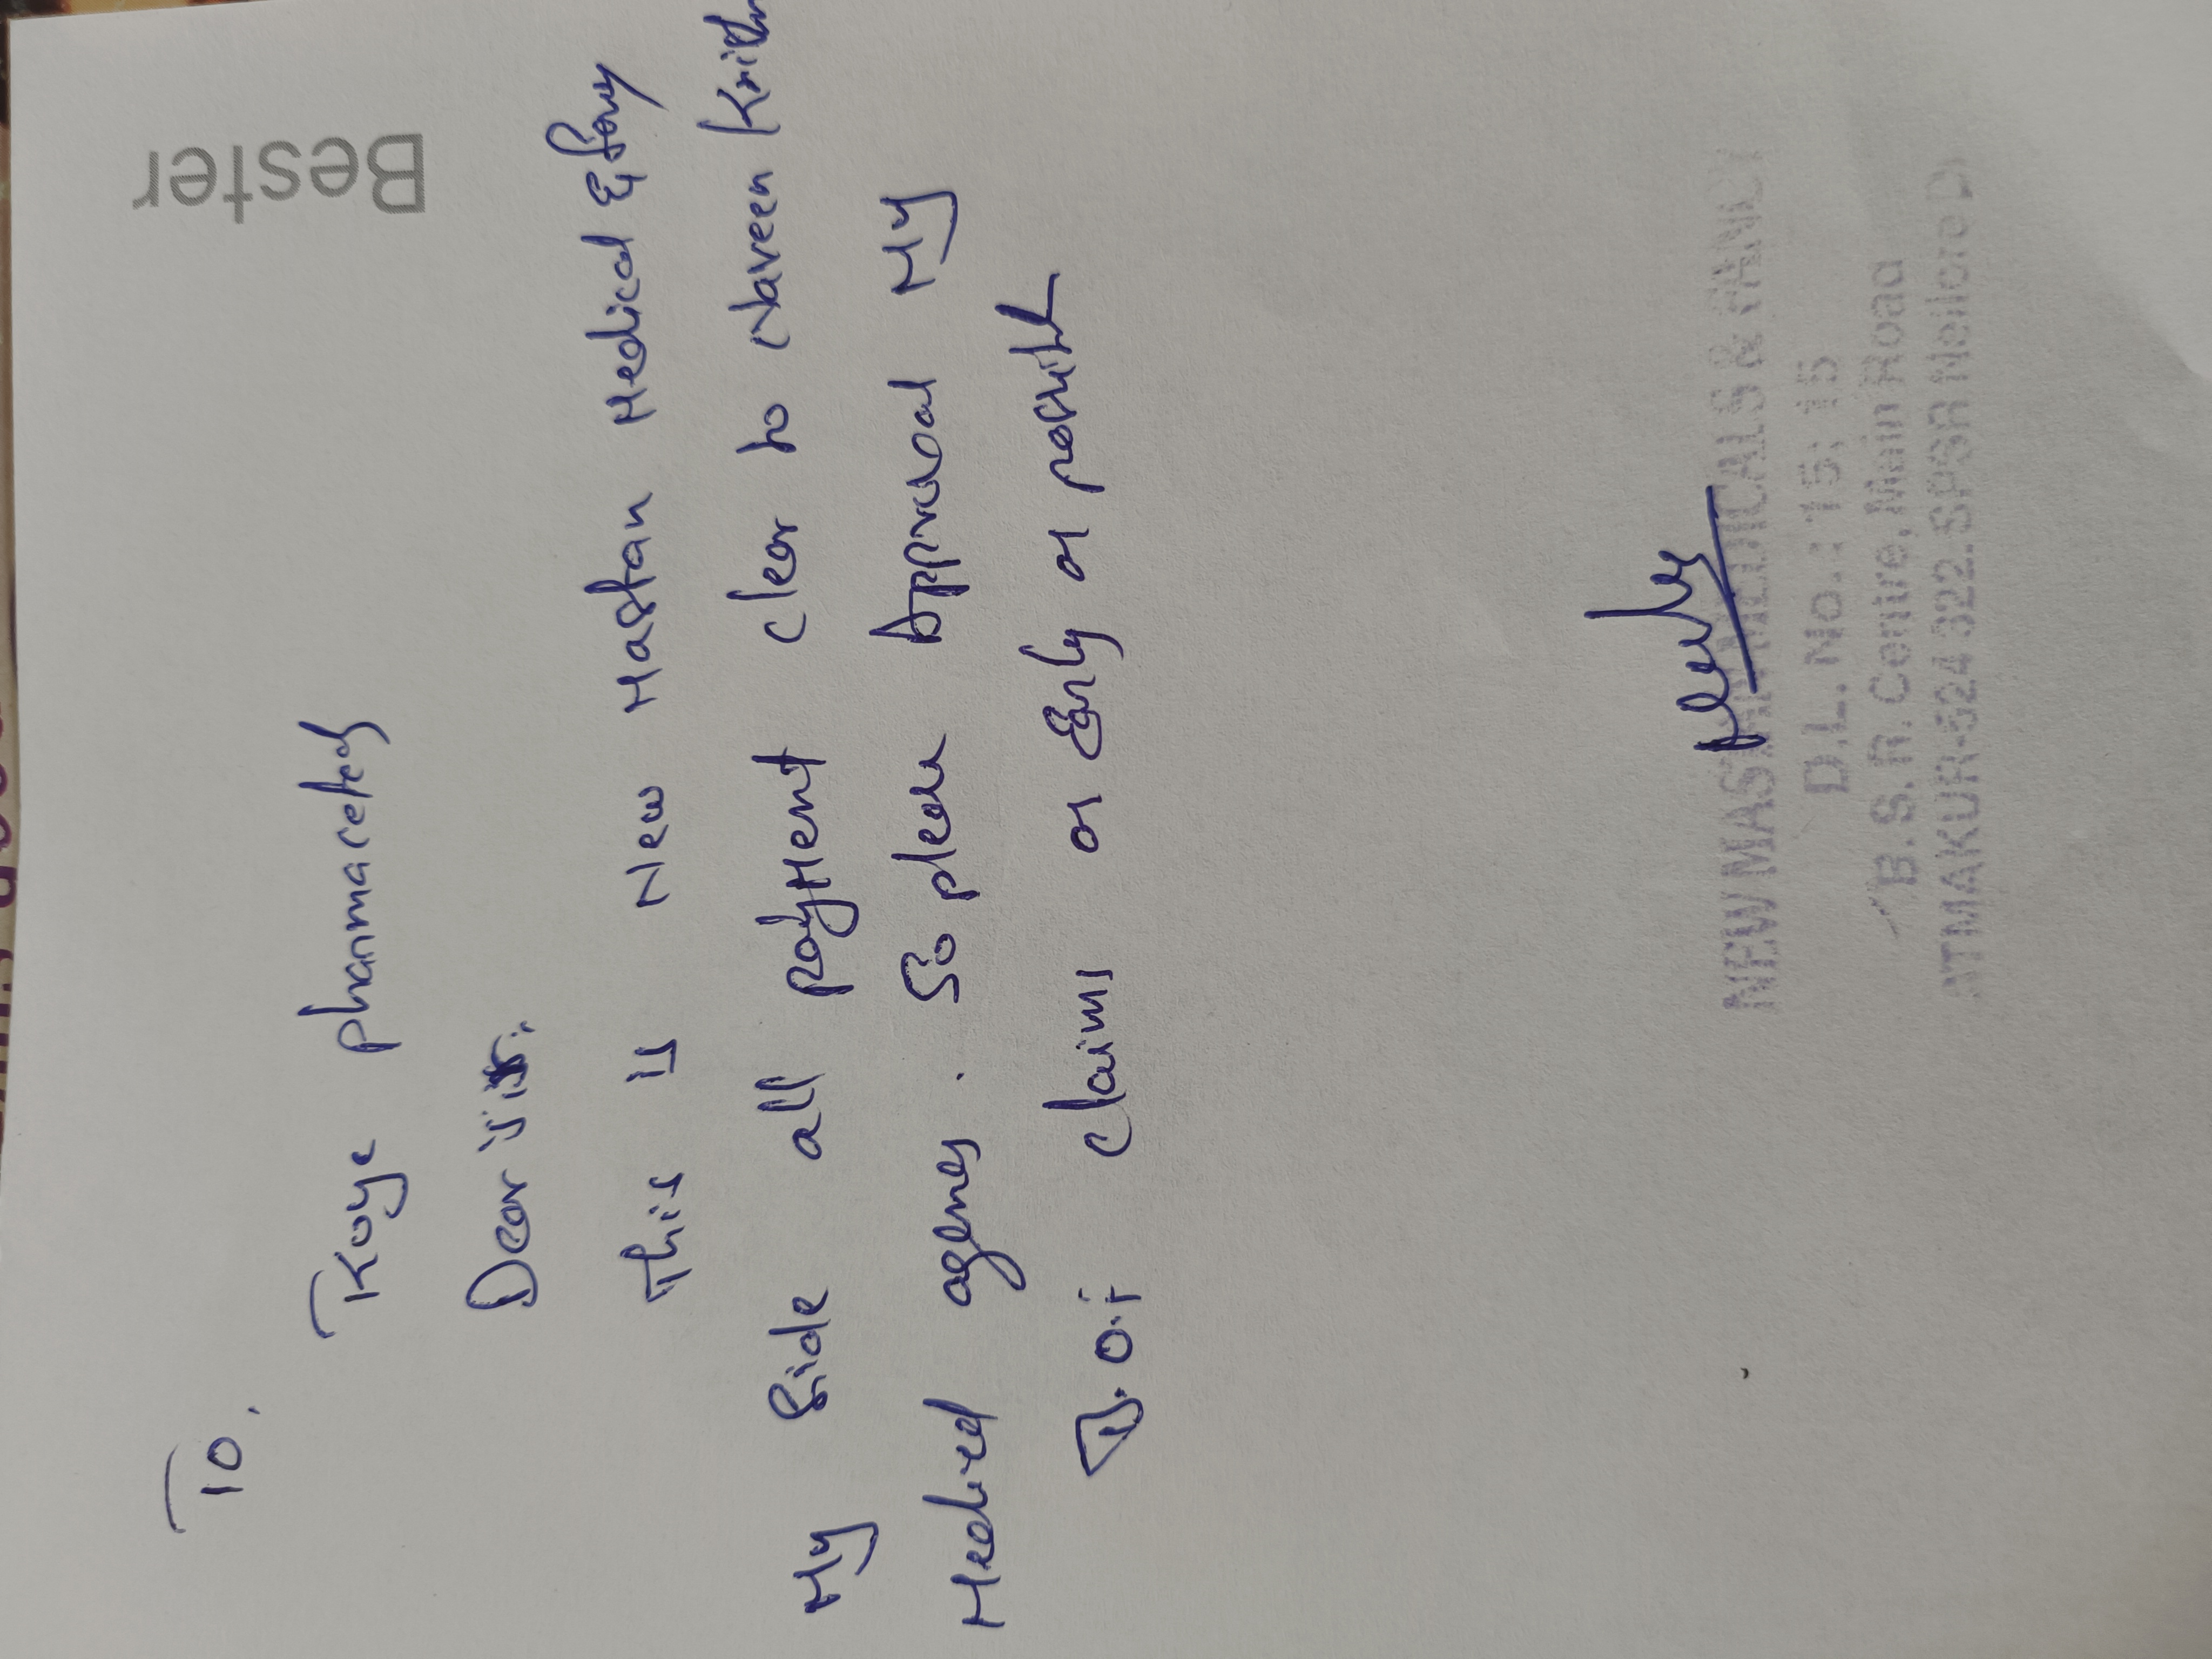 Bester
To,
Koye pharmacetes
Dear sir,
This is New Mastan Medical &
My side all payment clear to Naveen
Medical agency. So please Approval My
claims as Early as possible
NEW MASTAN MEDICALS & FANCY
D.L. No.: 15: 15
B.S.R. Centre, Main Road
ATMAKUR-524 322. SPSR Nellore D